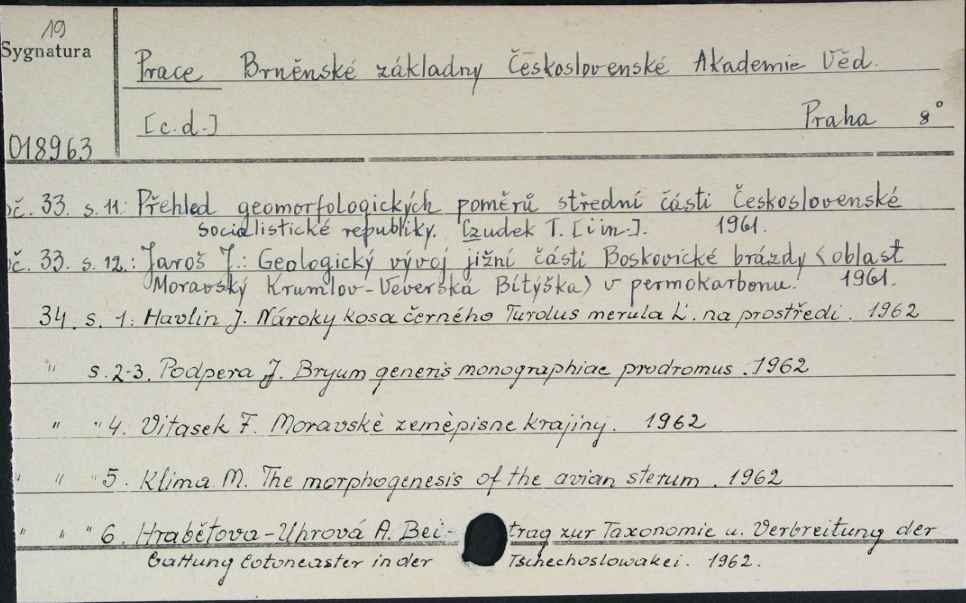 19
Sygnatura
Prace Brněnské základny Československé Akademie Věd.
[c.d.] Praha 8°
018963
č. 33. s. 11: Přehled geomorfologických poměrů střední části Československé
socialistické republiky. [zudek T. [i in.]. 1961.
č. 33. s. 12.: Jaroš J.: Geologický vývoj jižní části Boskovické brázdy (oblast
Moravský Krumlov-Veverská Bítýška) v permokarbonu. 1961.
34. s. 1: Havlin J. Nároky kosa černého Turdus merula L. na prostředi. 1962
" s. 2-3. Podpera J. Bryum generis monographiae prodromus. 1962
" " 4. Vitasek F. Moravské zemépisne krajiny. 1962
" " " 5. Klima M. The morphogenesis of the avian sterum. 1962
" " " 6. Hrabětova-Uhrová A. Bei- trag zur Taxonomie u. Verbreitung der
Gattung Cotoneaster in der Tschechoslowakei. 1962.